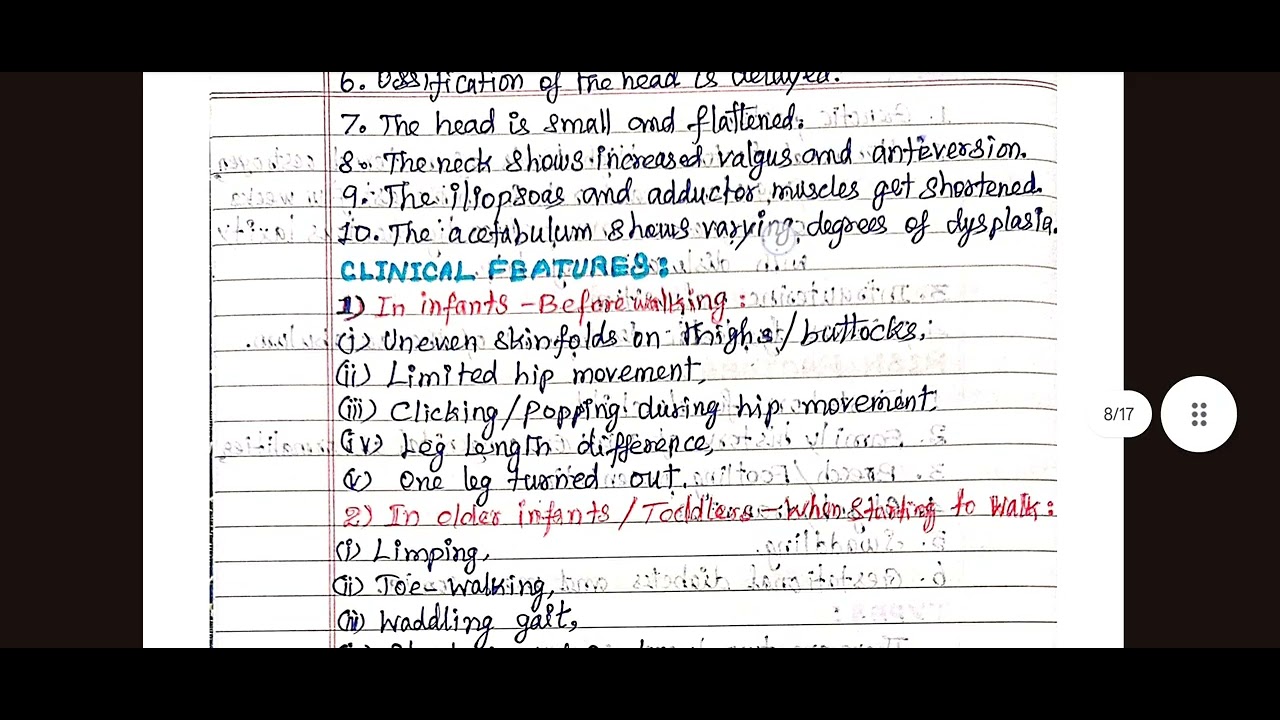 6. Ossification of the head is delayed.
7. The head is small and flattened.
8. The neck shows increased valgus and anteversion.
9. The iliopsoas and adductor muscles get shortened.
10. The acetabulum shows varying degrees of dysplasia.
CLINICAL FEATURES:
1) In infants - Before walking:
(i) Uneven skinfolds on thighs/buttocks.
(ii) Limited hip movement,
(iii) Clicking/popping during hip movement.
(iv) Leg length difference,
(v) One leg turned out.
2) In older infants/Toddlers - When starting to walk:
(i) Limping,
(ii) Toe-walking,
(iii) Waddling gait,
8/17